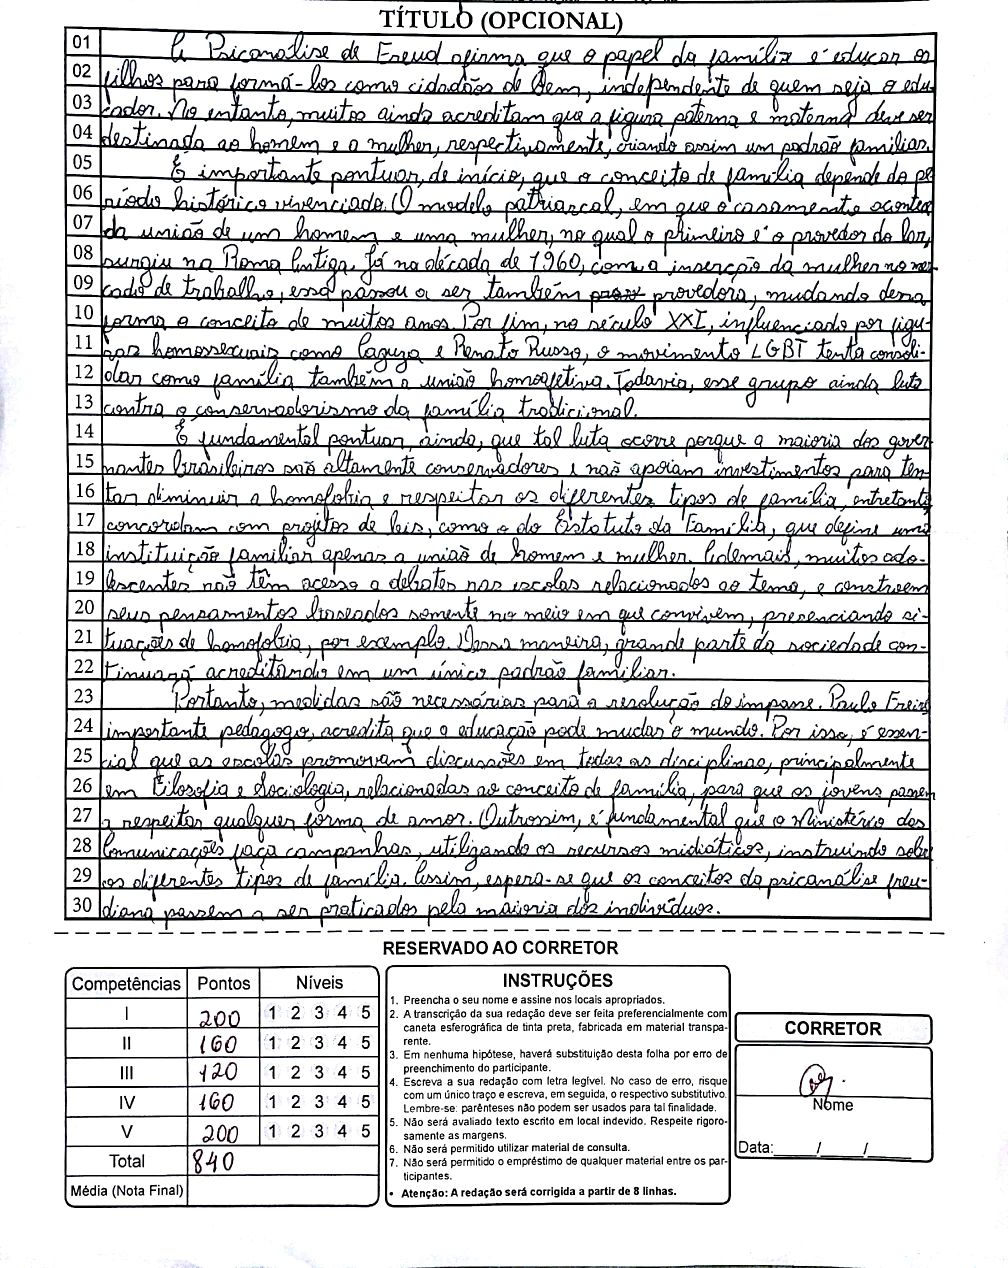 TÍTULO (OPCIONAL)
01 A Psicanálise de Freud afirma que o papel da família é educar os
02 filhos para formá-los como cidadãos de bem, independente de quem seja o edu-
03 cador. No entanto, muitos ainda acreditam que a figura paterna e materna deve ser
04 destinada ao homem e a mulher, respectivamente, criando assim um padrão familiar.
05 É importante pontuar, de início, que o conceito de família depende do pe
06 ríodo histórico vivenciado. O modelo patriarcal, em que o casamento acontea
07 da união de um homem e uma mulher, no qual o primeiro é o provedor do lar,
08 surgiu na Roma Antiga. Já na década de 1960, com a inserção da mulher no mer-
09 cado de trabalho, essa passou a ser também provedora, mudando dessa
10 forma o conceito de muitos anos. Por fim, no século XXI, influenciado por figu-
11 ras homossexuais como Cazuza e Renato Russo, o movimento LGBT tenta consoli-
12 dar como família também a união homoafetiva. Todavia, esse grupo ainda luta
13 contra o conservadorismo da família tradicional.
14 É fundamental pontuar, ainda, que tal luta ocorre porque a maioria dos gover
15 nantes brasileiros são altamente conservadores e não apoiam investimentos para ten-
16 tar diminuir a homofobia e respeitar os diferentes tipos de família, entretanto
17 concordam com projetos de leis, como o do Estatuto da Família, que define uma
18 instituição familiar apenas a união de homem e mulher. Ademais, muitos ado-
19 lescentes não têm acesso a debates nas escolas relacionados ao tema, e constroem
20 seus pensamentos baseados somente no meio em que convivem, presenciando si-
21 tuações de homofobia, por exemplo. Dessa maneira, grande parte da sociedade con-
22 tinuará acreditando em um único padrão familiar.
23 Portanto, medidas são necessárias para a resolução do impasse. Paulo Freire
24 importante pedagogo, acredita que a educação pode mudar o mundo. Por isso, é essen-
25 cial que as escolas promovam discussões em todas as disciplinas, principalmente
26 em Filosofia e Sociologia, relacionadas ao conceito de família, para que os jovens passem
27 a respeitar qualquer forma de amor. Outrossim, é fundamental que o Ministério das
28 Comunicações faça campanhas, utilizando os recursos midiáticos, instruindo sobre
29 os diferentes tipos de família. Assim, espera-se que os conceitos da psicanálise freu-
30 diana passem a ser praticados pela maioria dos indivíduos.
RESERVADO AO CORRETOR
Competências Pontos Níveis
I 200 1 2 3 4 5
II 160 1 2 3 4 5
III 120 1 2 3 4 5
IV 160 1 2 3 4 5
V 200 1 2 3 4 5
Total 840
Média (Nota Final)
INSTRUÇÕES
1. Preencha o seu nome e assine nos locais apropriados.
2. A transcrição da sua redação deve ser feita preferencialmente com
caneta esferográfica de tinta preta, fabricada em material transpa-
rente.
3. Em nenhuma hipótese, haverá substituição desta folha por erro de
preenchimento do participante.
4. Escreva a sua redação com letra legível. No caso de erro, risque
com um único traço e escreva, em seguida, o respectivo substitutivo.
Lembre-se: parênteses não podem ser usados para tal finalidade.
5. Não será avaliado texto escrito em local indevido. Respeite rigoro-
samente as margens.
6. Não será permitido utilizar material de consulta.
7. Não será permitido o empréstimo de qualquer material entre os par-
ticipantes.
• Atenção: A redação será corrigida a partir de 8 linhas.
CORRETOR
Nome
Data:____/____/____